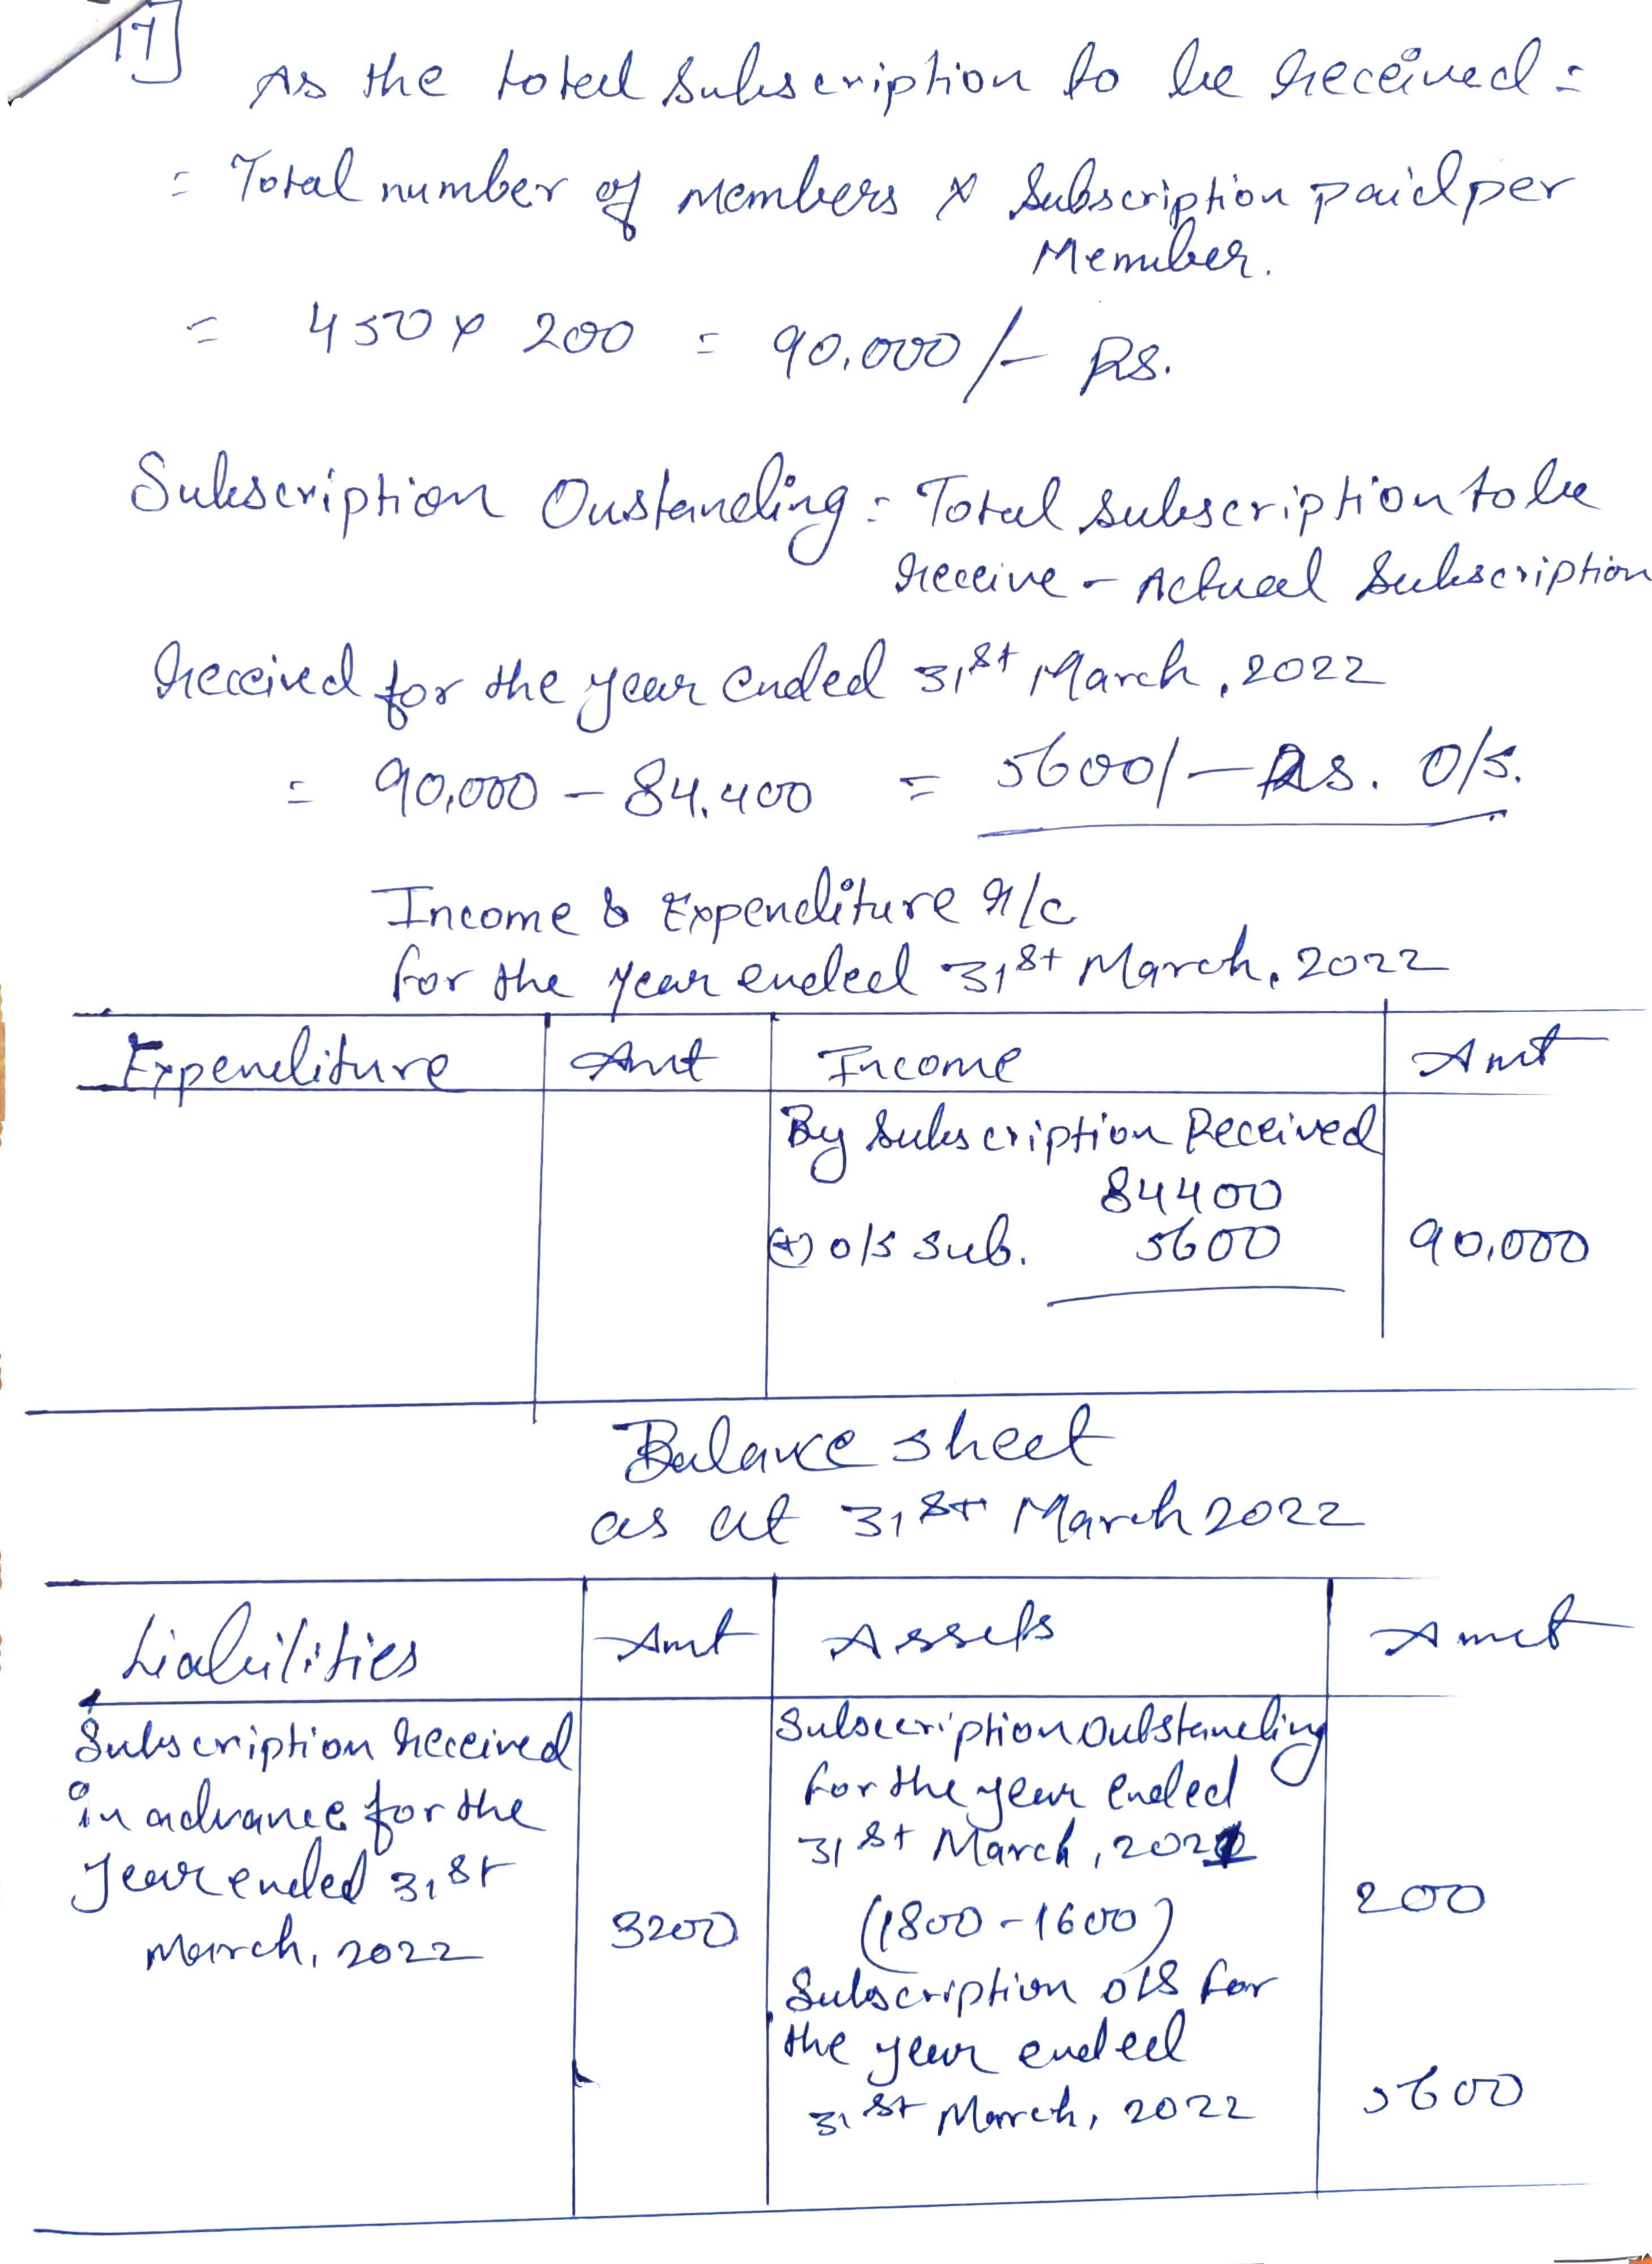 17]
As the total subscription to be received =
= Total number of members × Subscription paid per
Member.
= 450 × 200 = 90,000/- Rs.
Subscription Oustanding = Total subscription to be
receive - Actual Subscription
Received for the year ended 31st March, 2022
= 90,000 - 84,400 = 5600/- Rs. O/s.
Income & Expenditure A/c
for the year ended 31st March, 2022
Expenditure Amt Income Amt
By Subscription Received
84400
(+) o/s sub. 5600 90,000
Balance sheet
as at 31st March 2022
Liabilities Amt Assets Amt
Subscription received
in advance for the
Year ended 31st
March, 2022 3200
Subscription Outstanding
for the year ended
31st March, 2021
(1800-1600) 200
Subscription o/s for
the year ended
31st March, 2022 5600